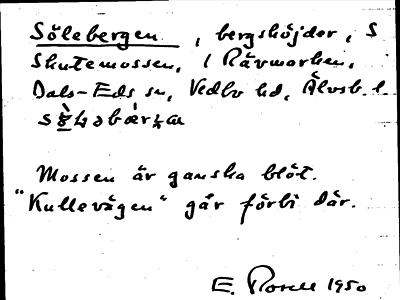 Sölebergen, bergshöjder, S
Skutemossen, i Rävmarken,
Dals-Eds sn, Vedbo hd, Älvsb. l.
Mossen är ganska blöt.
"Kullevägen" går förbi där.
E. 1950